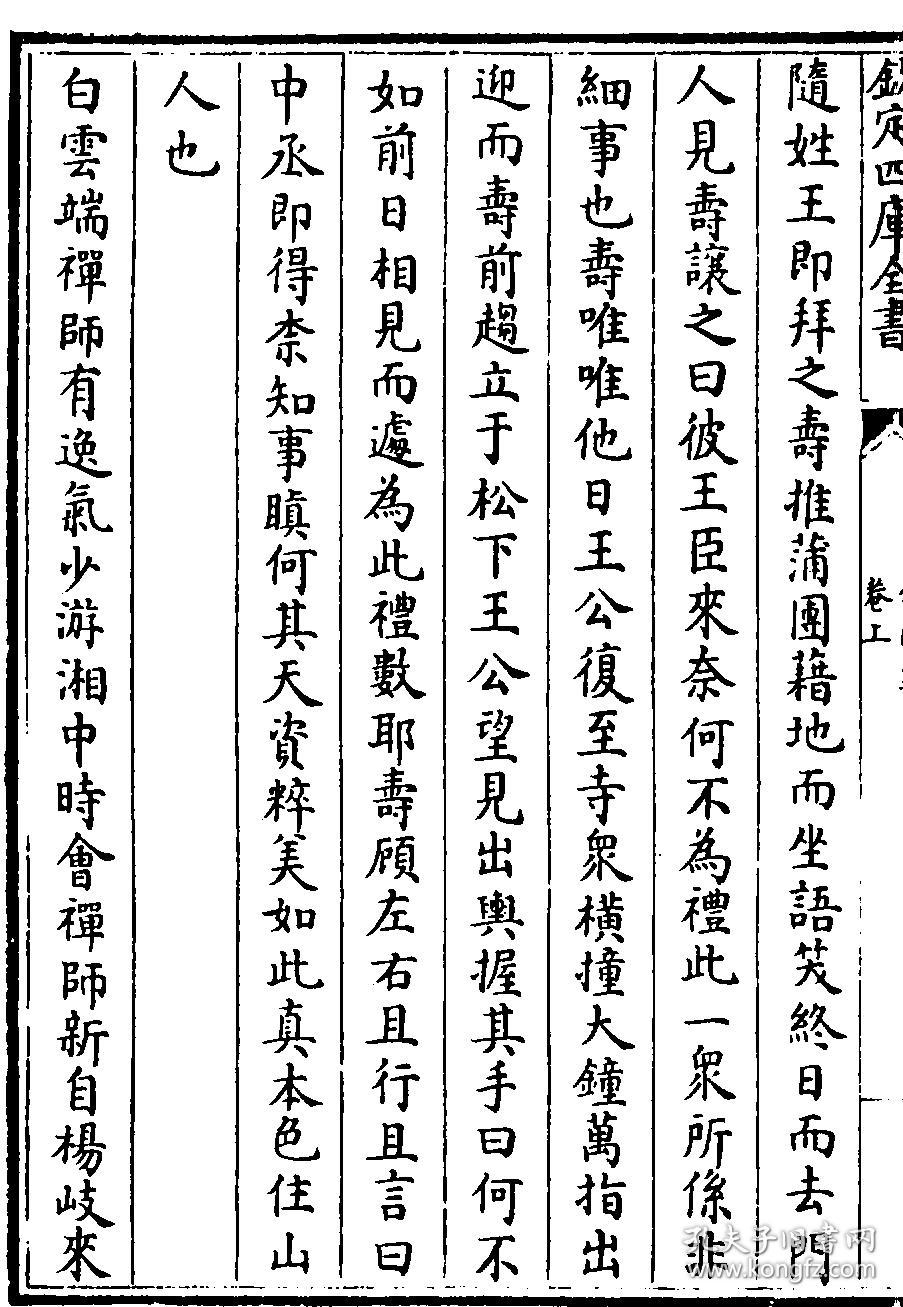 欽定四庫全書
卷上
隨姓王即拜之壽推蒲團藉地而坐語笑終日而去門
人見壽讓之曰彼王臣來奈何不為禮此一衆所係非
細事也壽唯唯他日王公復至寺衆横撞大鐘萬指出
迎而壽前趨立于松下王公望見出輿握其手曰何不
如前日相見而遽為此禮數耶壽顧左右且行且言曰
中丞即得柰知事瞋何其天資粹美如此真本色住山
人也
白雲端禪師有逸氣少游湘中時會禪師新自楊岐來
孔夫子旧书网
www.kongfz.com